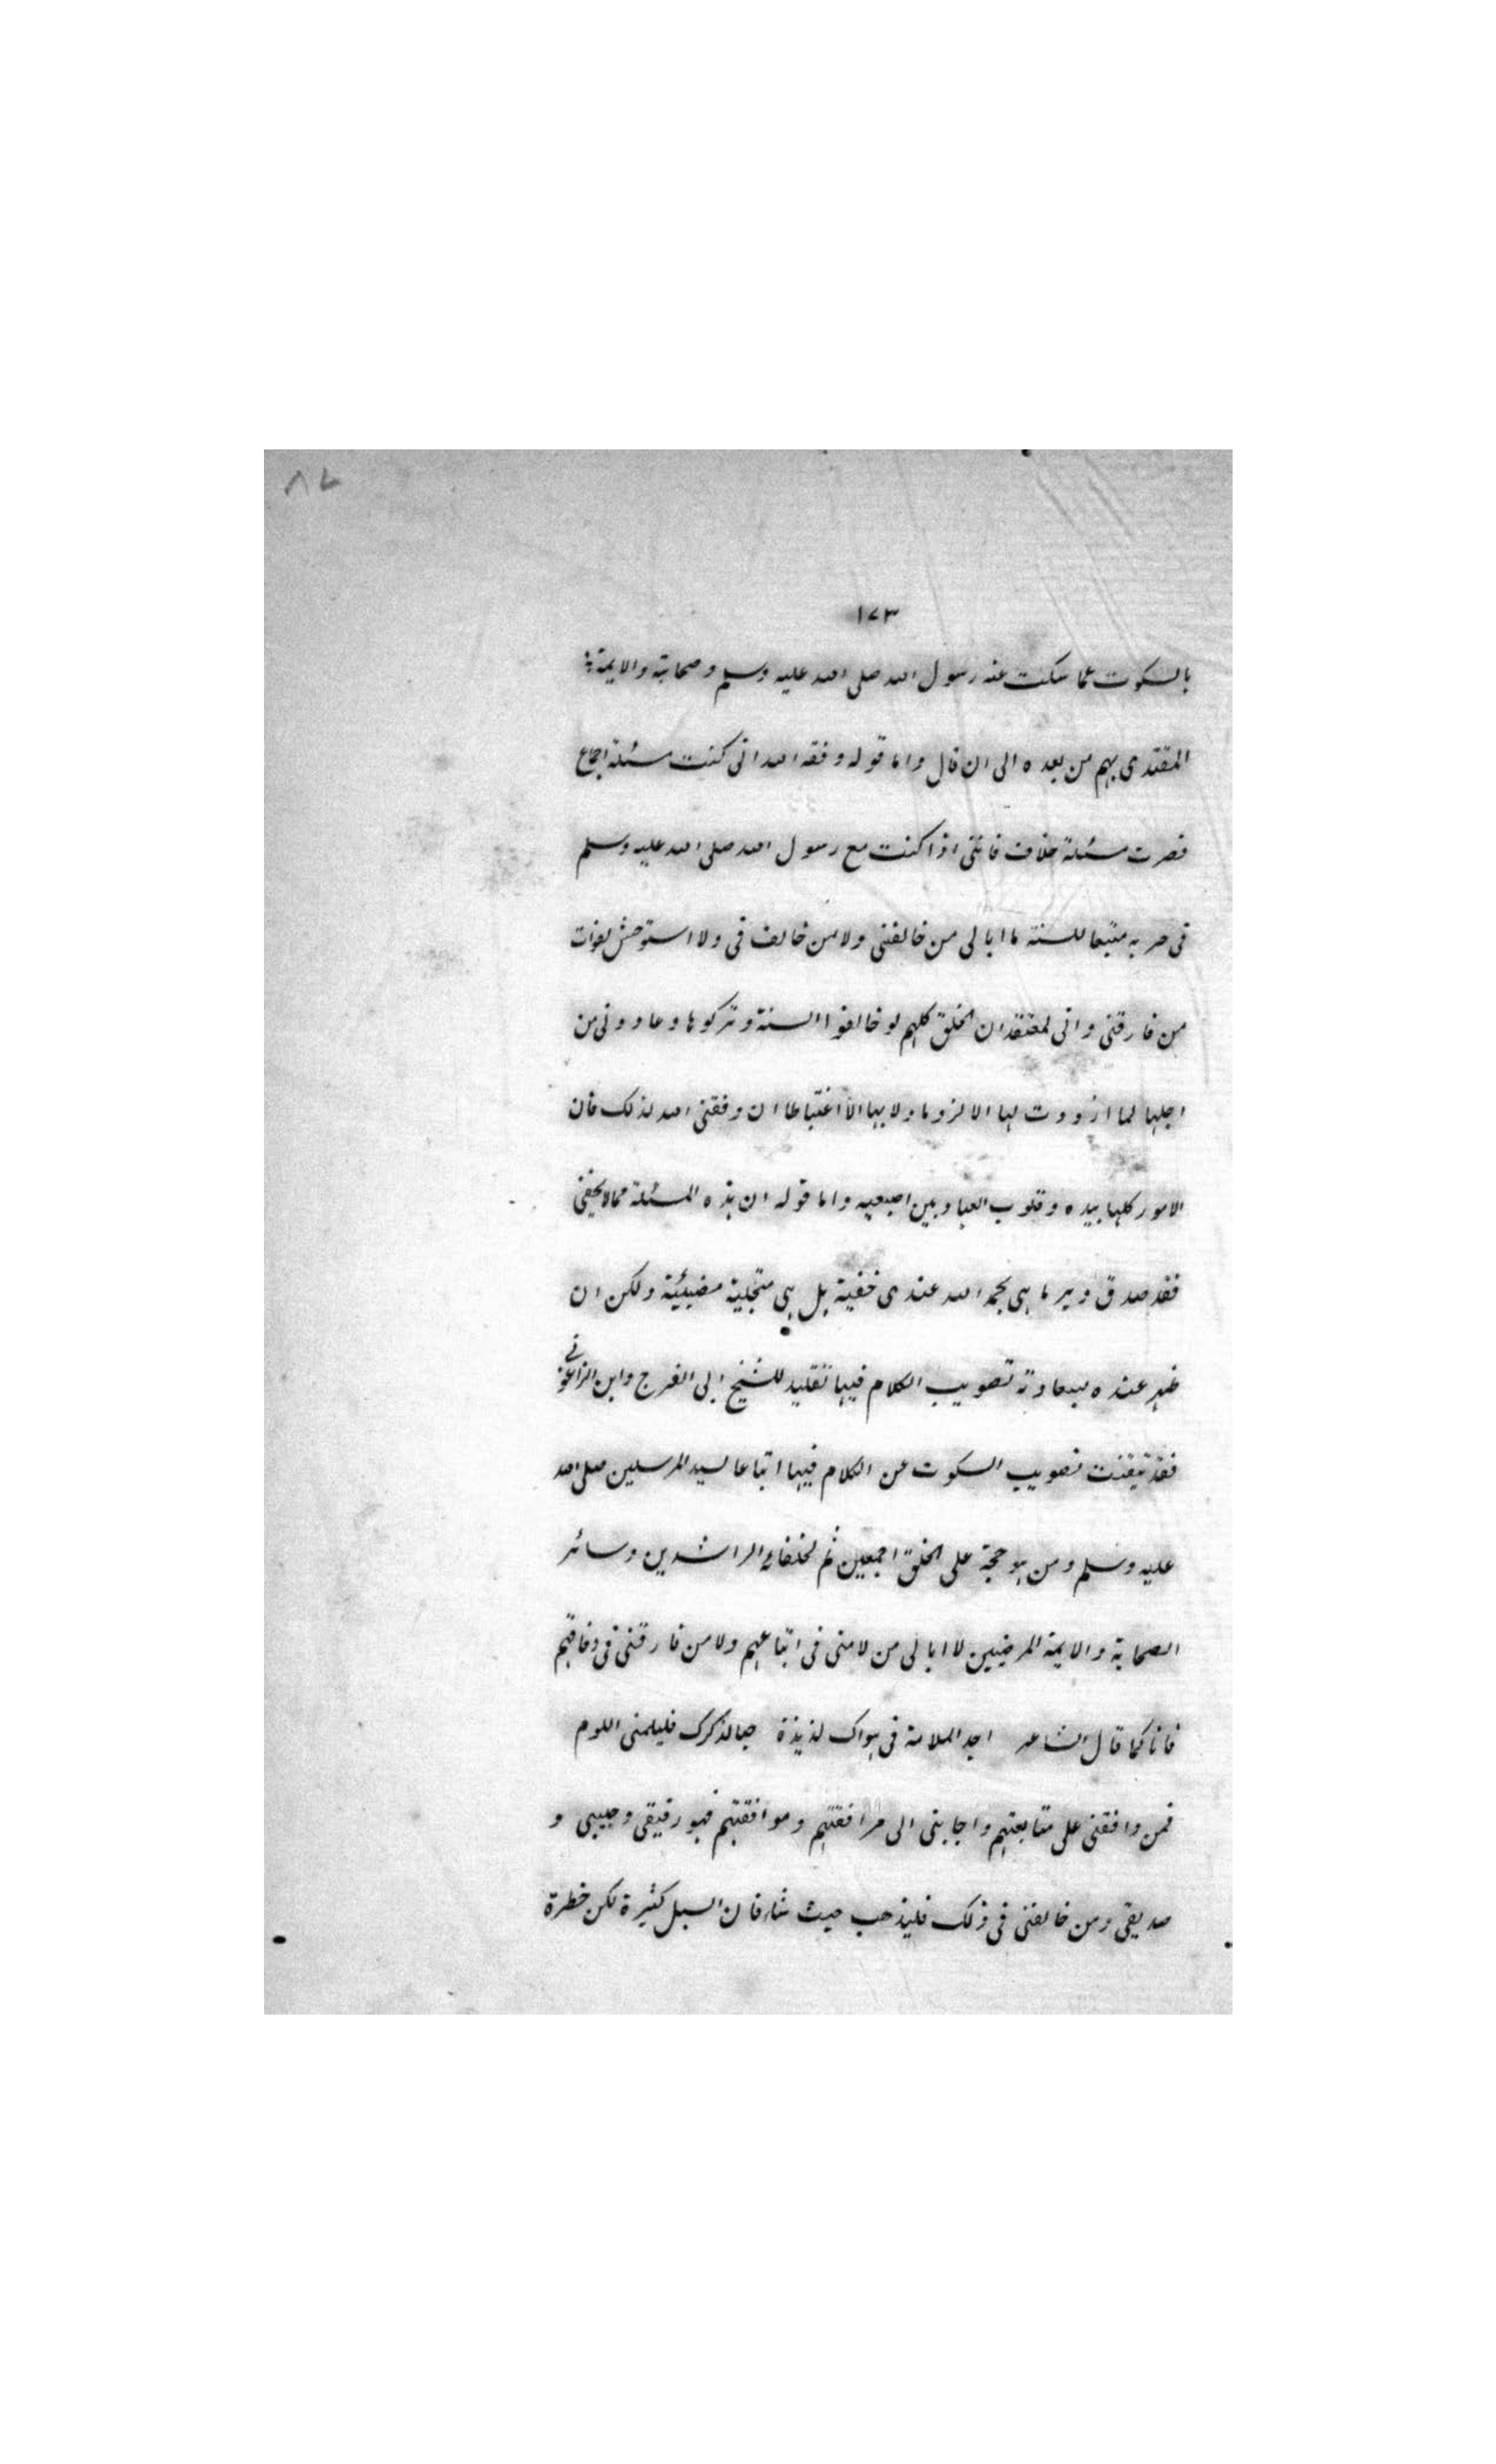 ٨٧
١٧٣
بالسكوت عما سكت عنه رسول الله صلى الله عليه وسلم وصحابته والايمة
المقتدى بهم من بعده الى ان قال واما قوله وفقه الله انى كنت مسئلة اجماع
فصرت مسئلة خلاف فانني اذا كنت مع رسول الله صلى الله عليه وسلم
فى حزبه متبعا للسنة ما ابالى من خالفنى ولا من خالف فى ولا استوحش لفوات
من فارقنى وانى لمعتقد ان الخلق كلهم لو خالفوا السنة وتركوها وعادونى من
اجلها لما ازددت لها الا لزوما ولا بها الا اغتباطا ان وفقنى الله لذلك فان
الامور كلها بيده وقلوب العباد بين اصبعيه واما قوله ان هذه المسئلة مما لا يخفى
فقد صدق وبر ما هى بحمد الله عندى خفية بل هى متجلية مضيئة ولكن ان
ظهر عنده بسعادته تصويب الكلام فيها تقليد للشيخ ابى الفرج وابن الزاغونى
فقد تيقنت تصويب السكوت عن الكلام فيها اتباعا لسيد المرسلين صلى الله
عليه وسلم ومن هو حجة على الخلق اجمعين ثم لخلفائه الراشدين وسائر
الصحابة والايمة المرضيين لا ابالى من لامنى فى اتباعهم ولا من فارقنى فى وفاقهم
فانا كما قال الشاعر اجد الملامة فى هواك لذيذة حبا لذكرك فليلمنى اللوم
فمن وافقنى على متابعتهم واجابنى الى مرافقتهم وموافقتهم فهو رفيقى وحبيبى و
صديقى ومن خالفنى فى ذلك فليذهب حيث شاء فان السبل كثيرة لكن خطرة